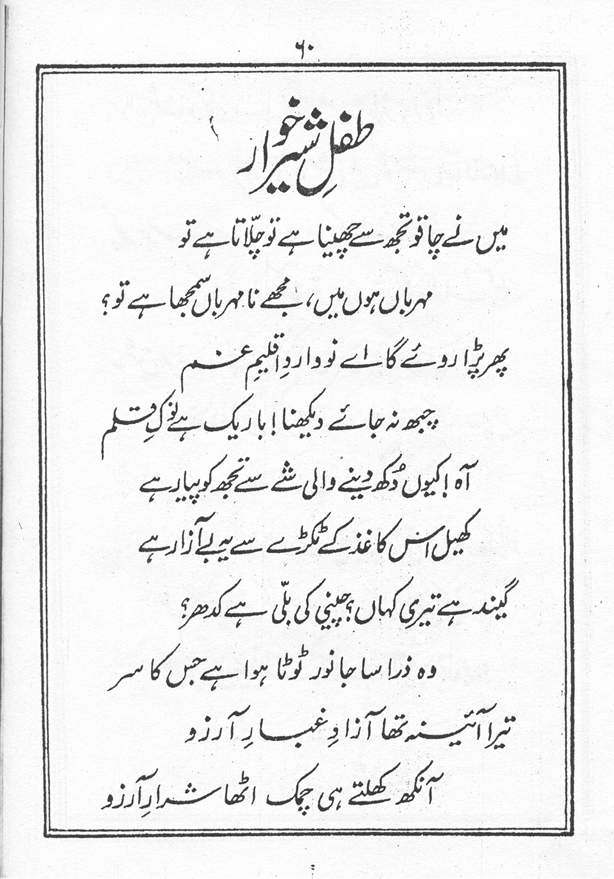 ۶۰
طفلِ شیر خوار
میں نے چاقو تجھ سے چھینا ہے تو چلّاتا ہے تو
مہرباں ہوں میں، مجھے نا مہرباں سمجھا ہے تو؟
پھر پڑا روئے گا اے نو واردِ اقلیمِ غم
چبھ نہ جائے دیکھنا! باریک ہے نوکِ قلم
آہ! کیوں دُکھ دینے والی شے سے تجھ کو پیار ہے
کھیل اس کاغذ کے ٹکڑے سے یہ بے آزار ہے
گیند ہے تیری کہاں؟ چینی کی بلّی ہے کدھر؟
وہ ذرا سا جانور ٹوٹا ہوا ہے جس کا سر
تیرا آئینہ تھا آزادِ غبارِ آرزو
آنکھ کھلتے ہی چمک اٹھا شرارِ آرزو